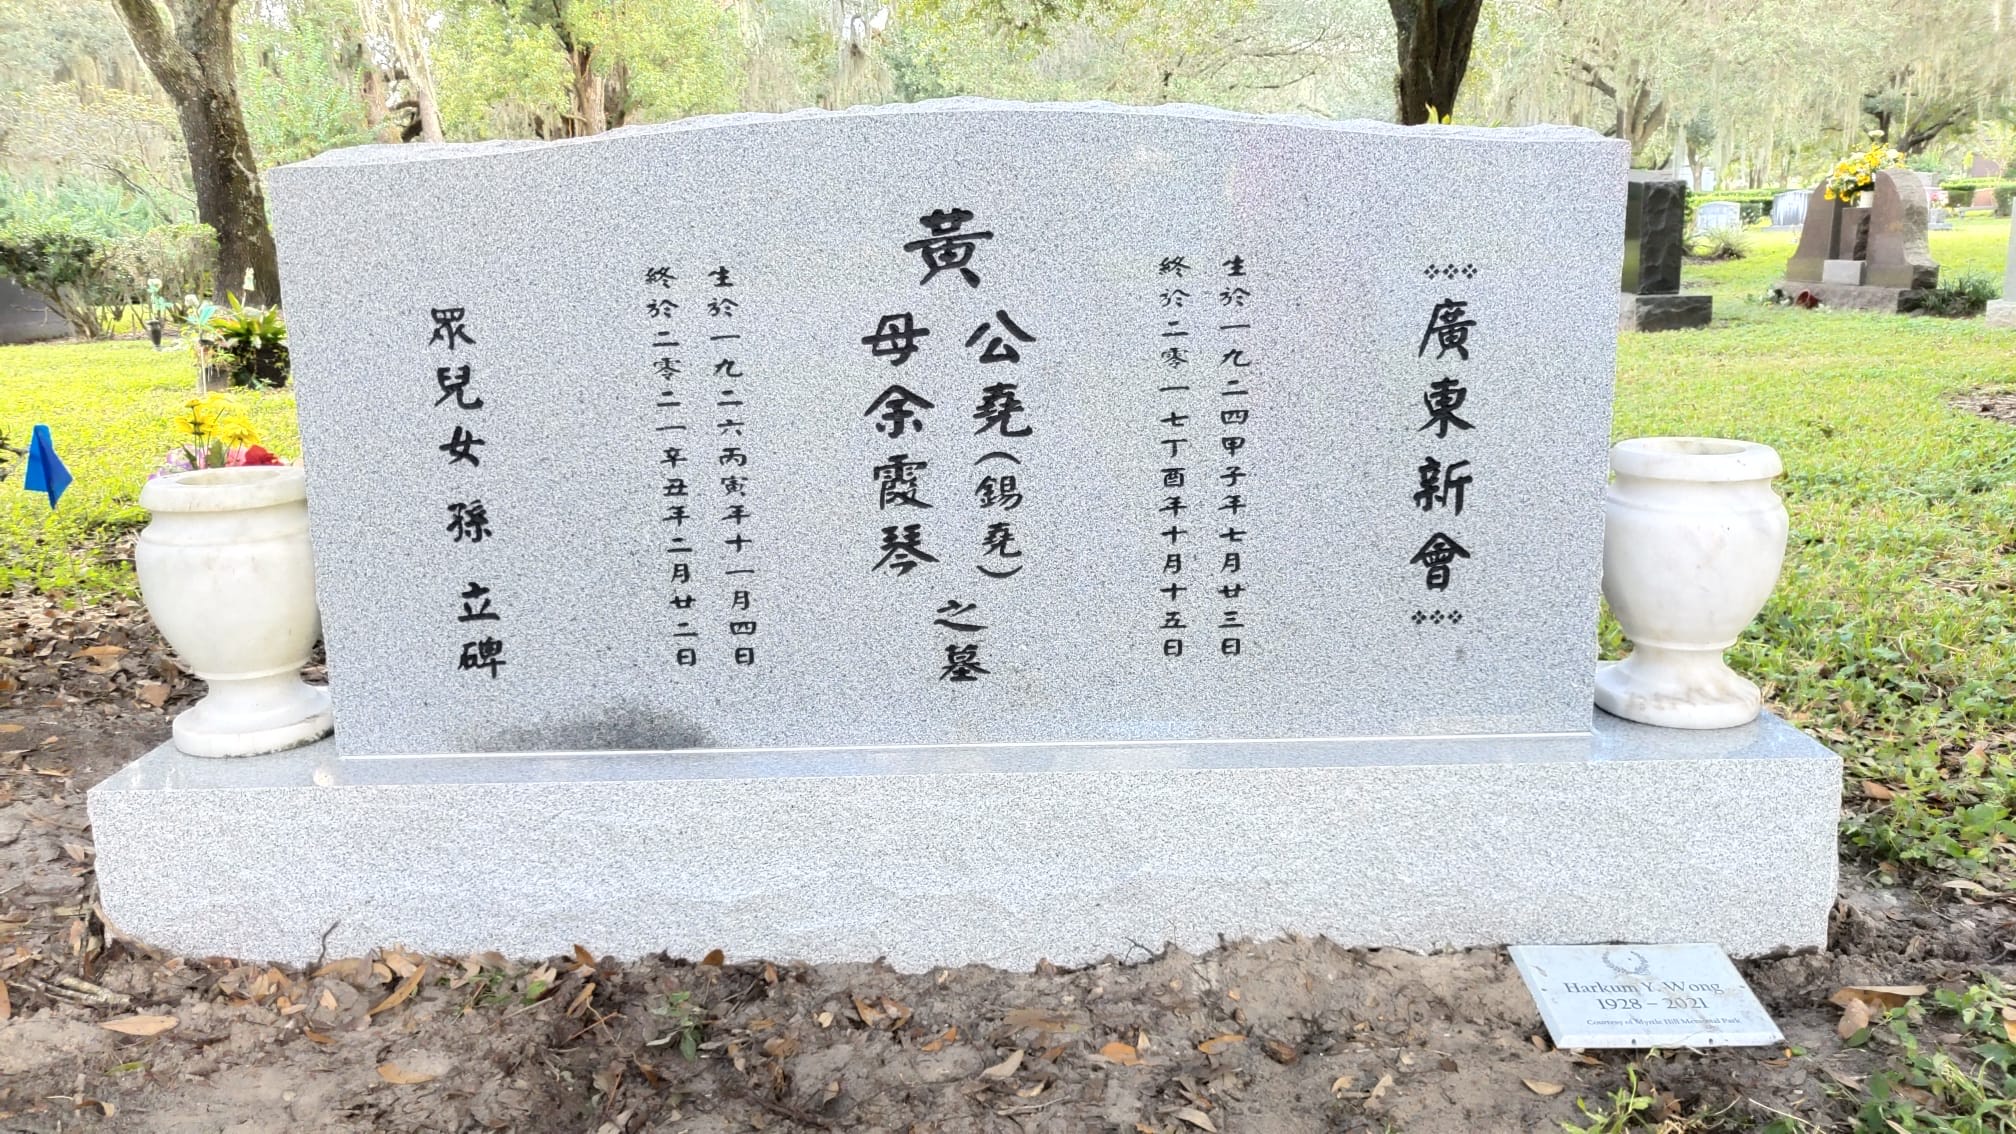 廣東新會
生於一九二四甲子年七月廿三日
終於二零一七丁酉年十月十五日
黃
公堯(錫堯)
母余霞琴
之墓
生於一九二六丙寅年十一月四日
終於二零二一辛丑年二月廿二日
眾兒女 孫 立碑
Harkum Y. Wong
1928 – 2021
Courtesy of Myrtle Hill Memorial Park